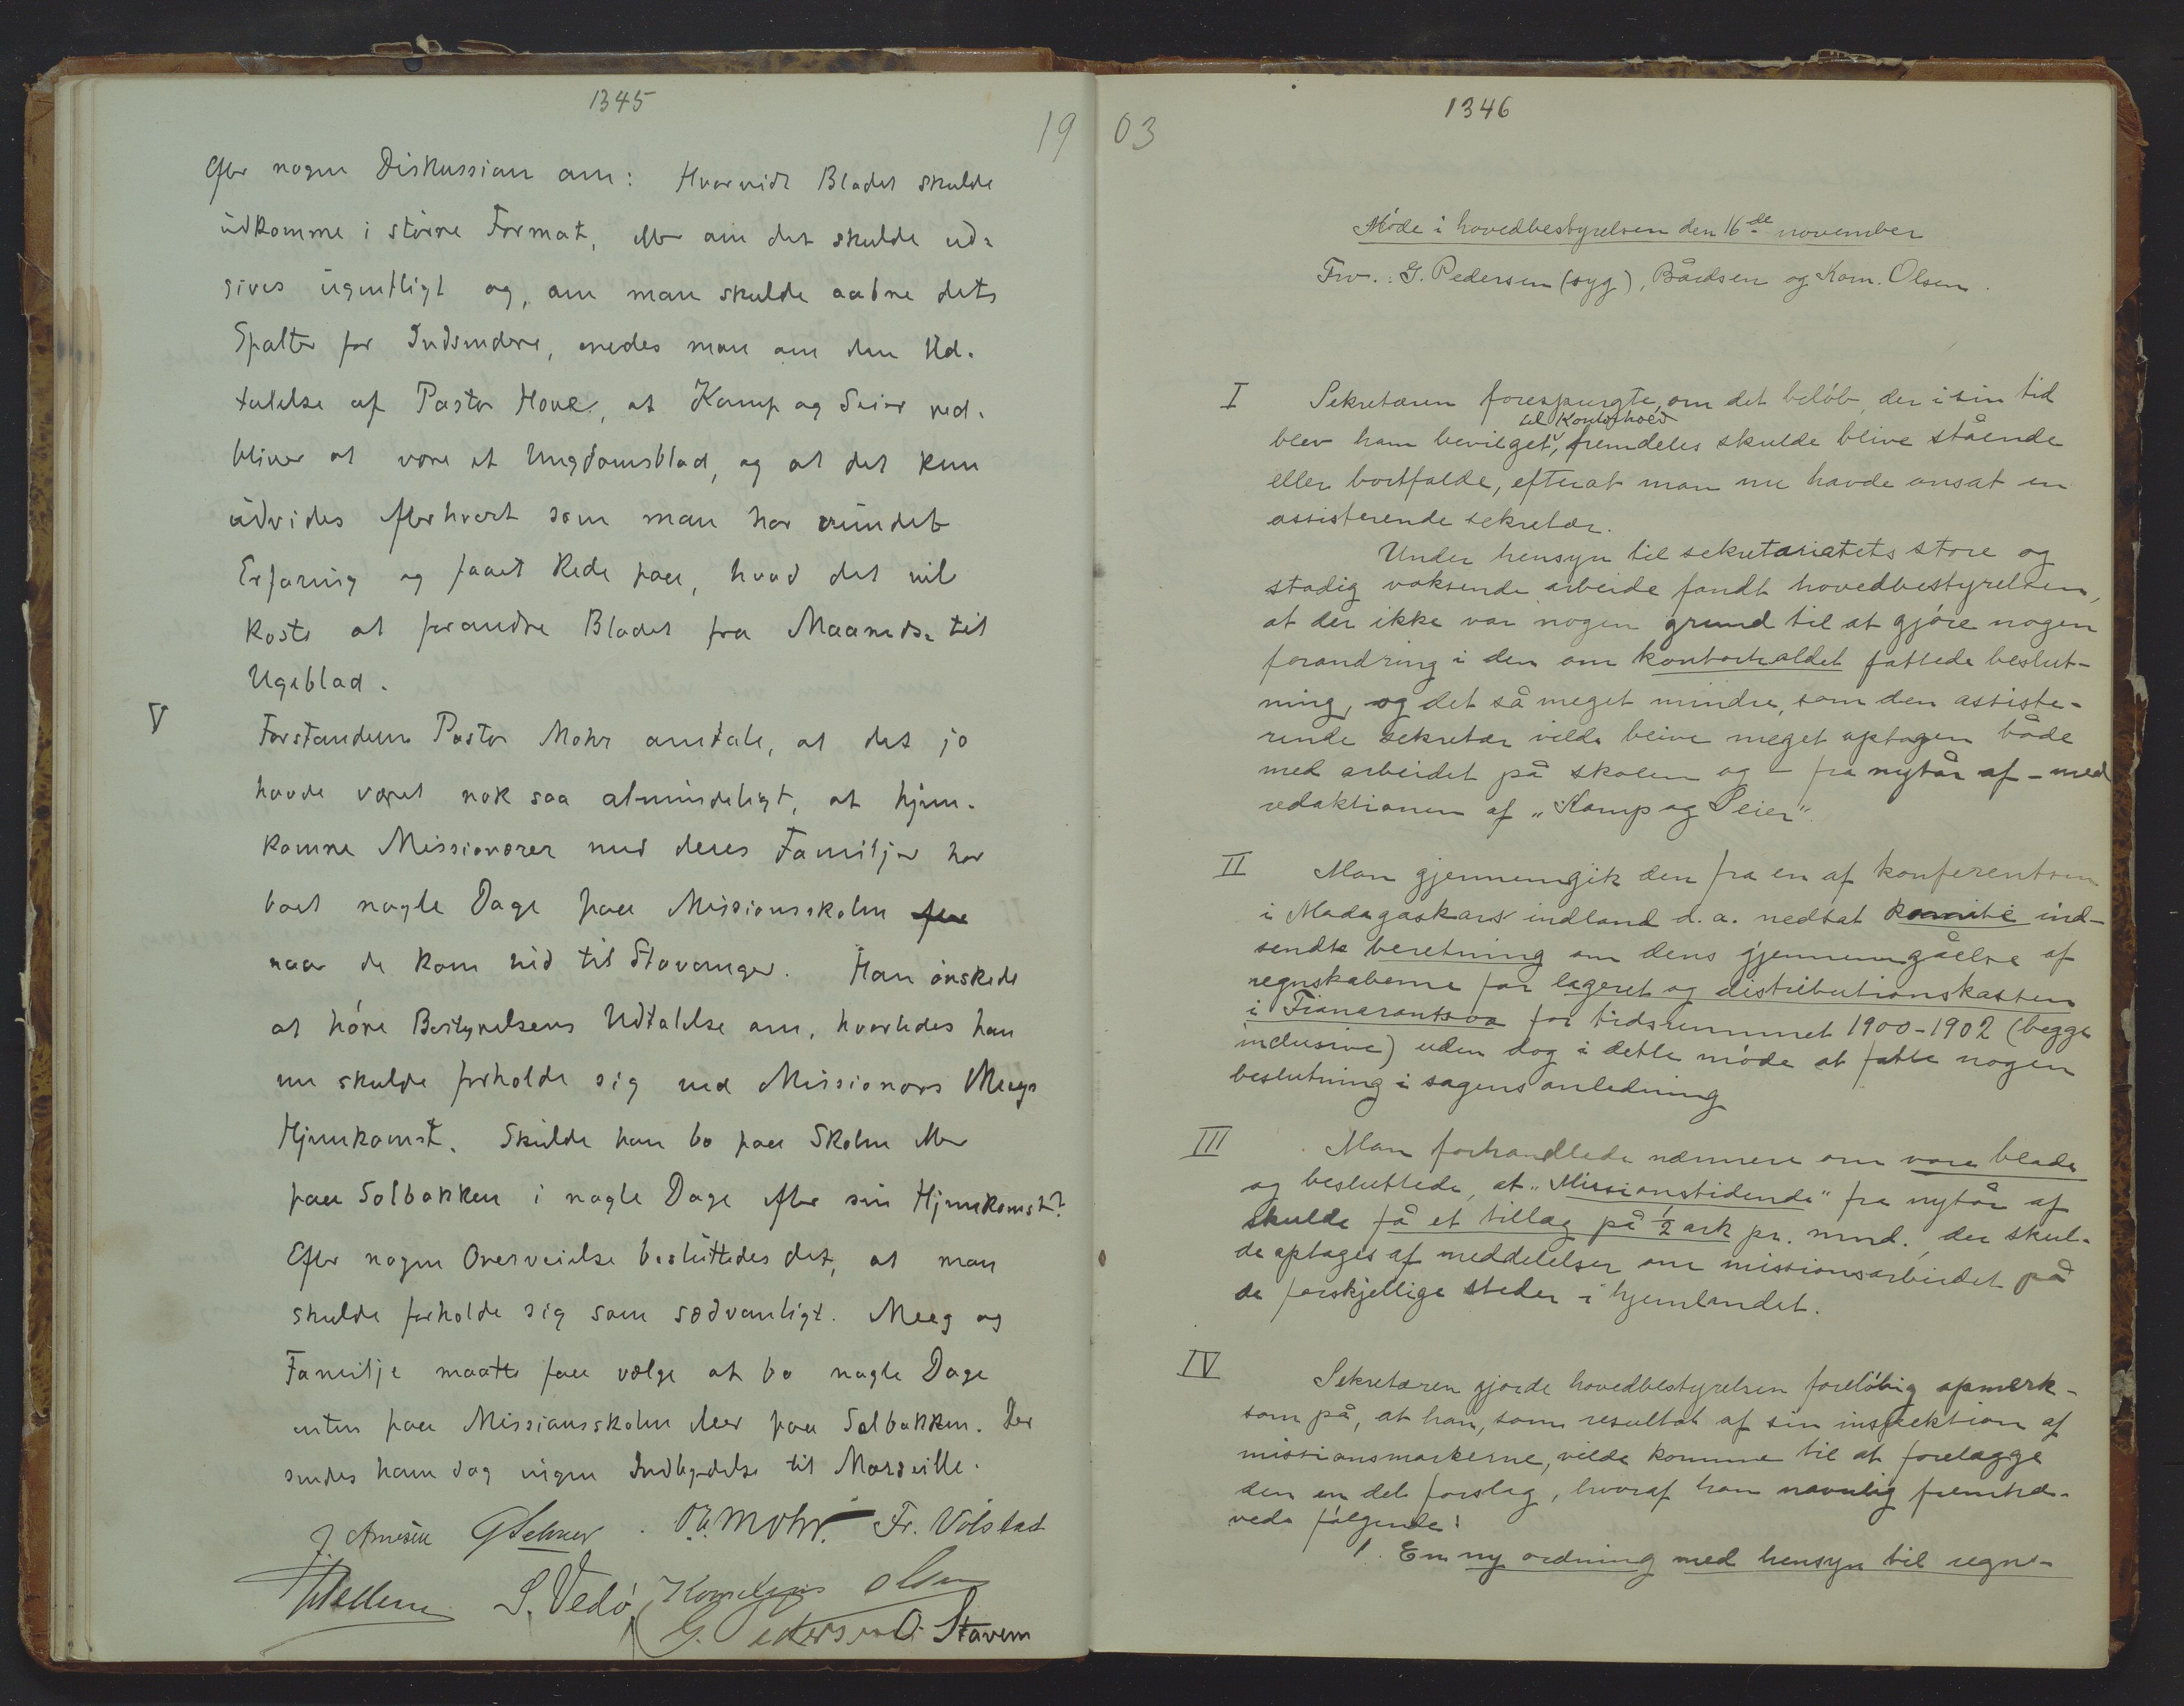 1345
19
Efter nogen Diskussion om: Hvorvidt Bladet skulde
udkomme i større Format, eller om det skulde ud-
gives ugentligt og, om man skulde aabne dets
Spalter for Indsendere, enedes man om den Ud-
talelse af Pastor Hove, at Kamp og Seier ved-
bliver at være et Ungdomsblad, og at det kun
udvides efterhvert som man har vundet
Erfaring og faaet Rede paa, hvad det vil
koste at forandre Bladet fra Maaneds- til
Ugeblad.
V Forstanderen Pastor Mohr omtale, at det jo
havde været nok saa almindeligt, at hjem-
komne Missionærer med deres Familjer har
boet nogle Dage paa Missionsskolen
naar de kom hid til Stavanger. Han ønskede
at høre Bestyrelsens Udtalelse om, hvorledes han
nu skulde forholde sig ved Missionær Meegs
Hjemkomst. Skulde han bo paa Skolen eller
paa Solbakken i nogle Dage efter sin Hjemkomst?
Efter nogen Overveielse besluttedes det, at man
skulde forholde sig som sædvanligt. Meeg og
Familje maatte faa vælge at bo nogle Dage
enten paa Missionsskolen eller paa Solbakken. Der
sendes ham dog ingen Indbydelse til Marseille.
J. Arnesen Mohr. Fr. Vólstad
S. Vedø Kornelius Olsen
G. Pedersen O. Stavem
1346
03
Møde i hovedbestyrelsen den 16de november
Frv.: G. Pedersen (syg), Bårdsen og Korn. Olsen.
I Sekretæren forespurgte, om det beløb, der i sin tid
til kontorhold
blev ham bevilget, fremdeles skulde blive stående
eller bortfalde, efterat man nu havde ansat en
assisterende sekretær.
Under hensyn til sekretariatets store og
stadig voksende arbeide fandt hovedbestyrelsen,
at der ikke var nogen grund til at gjøre nogen
forandring i den om kontorholdet fattede beslut-
ning, og det så meget mindre, som den assiste-
rende sekretær vilde blive meget optagen både
med arbeidet på skolen og – fra nytår af – med
redaktionen af „Kamp og Seier“.
II Man gjennemgik den fra en af konferentsen
i Madagaskars indland d. a. nedsat komité ind-
sendte beretning om dens gjennemgåelse af
regnskaberne for lageret og distributionskassen
i Fianarantsoa for tidsrummet 1900-1902 (begge
inclusive) uden dog i dette møde at fatte nogen
beslutning i sagens anledning
III Man forhandlede nærmere om vore blade
og besluttede, at „Missionstidende“ fra nytår af
skulde få et tillæg på 1/2 ark pr. mnd., der skul-
de optages af meddelelser om missionsarbeidet på
de forskjellige steder i hjemlandet.
IV Sekretæren gjorde hovedbestyrelsen foreløbig opmerk-
som på, at han, som resultat af sin inspektion af
missionsmarkerne, vilde komme til at forelægge
den en del forslag, hvoraf han navnlig fremhæ-
vede følgende:
1. En ny ordning med hensyn til regn-